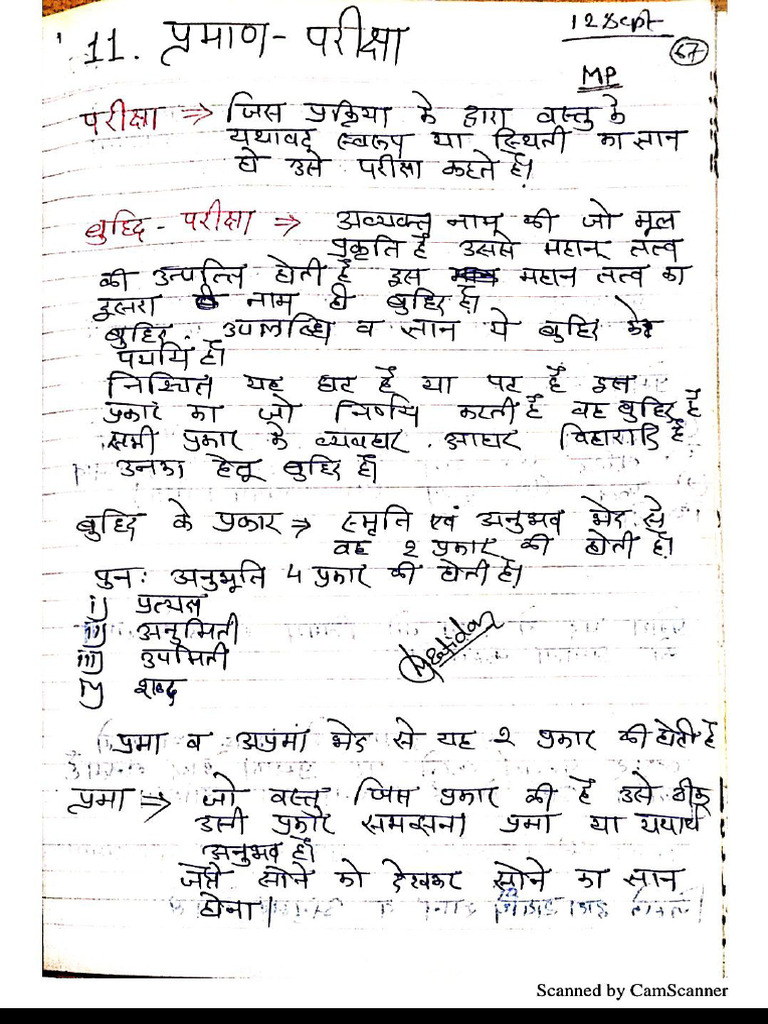 12 Sept
67
11. प्रमाण - परीक्षा
MP
परीक्षा ⇒ जिस प्रक्रिया के द्वारा वस्तु के
यथावद् स्वरूप या स्थिती का ज्ञान
हो उसे परीक्षा कहते हैं।
बुद्धि - परीक्षा ⇒ अव्यक्त नाम की जो मूल
प्रकृति है उससे महान् तत्व
की उत्पत्ति होती है इस महान तत्व का
दूसरा नाम ही बुद्धि है।
बुद्धि, उपलब्धि व ज्ञान ये बुद्धि के
पर्याय हैं।
निश्चित यह घट है या पट है इस
प्रकार का जो निर्णय करती है वह बुद्धि है
सभी प्रकार के व्यवहार, आहार विहारादि है
उनका हेतू बुद्धि है।
बुद्धि के प्रकार ⇒ स्मृति एवं अनुभव भेद से
वह 2 प्रकार की होती है।
पुनः अनुभूति 4 प्रकार की होती है।
i) प्रत्यक्ष
ii) अनुमिती
iii) उपमिती
iv) शब्द
प्रमा व अप्रमा भेद से यह 2 प्रकार की होती है
प्रमा ⇒ जो वस्तु जिस प्रकार की है उसे ठीक
उसी प्रकार समझना प्रमा या यथार्थ
अनुभव है।
जैसे सोने को देखकर सोने का ज्ञान
होना।
Scanned by CamScanner